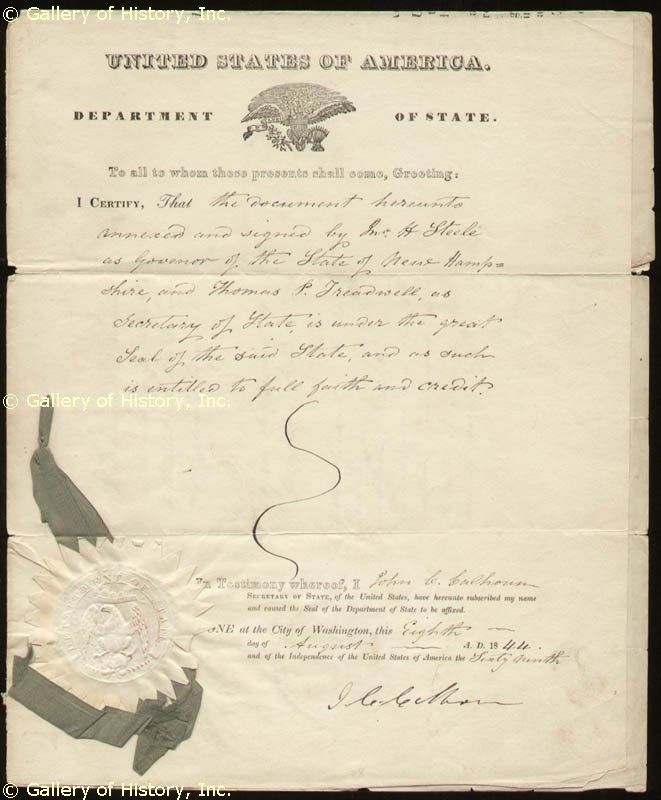 © Gallery of History, Inc.
© Gallery of History, Inc.
UNITED STATES OF AMERICA.
DEPARTMENT OF STATE.
To all to whom these presents shall come, Greeting:
I CERTIFY, That the document hereunto
annexed and signed by Jno. H Steele
as Govenor of the State of New Hamp=
shire, and Thomas P. Treadwell, as
Secretary of State, is under the great
Seal of the said State, and as such
is entitled to full faith and credit.
© Gallery of History, Inc.
© Gallery of History, Inc.
In Testimony whereof, I John C. Calhoun
SECRETARY OF STATE, of the United States, have hereunto subscribed my name
and caused the Seal of the Department of State to be affixed.
ONE at the City of Washington, this Eighth
day of August A. D. 1844.
and of the Independence of the United States of America the Sixty ninth
J. C. Calhoun
© Gallery of History, Inc.
© Gallery of History, Inc.